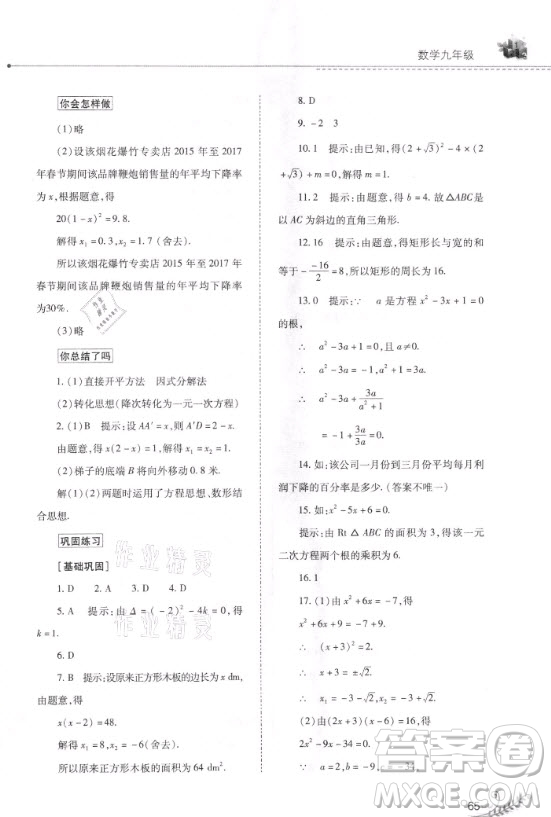 数学九年级
你会怎样做
(1)略
(2)设该烟花爆竹专卖店 2015 年至 2017
年春节期间该品牌鞭炮销售量的年平均下降率
为 x,根据题意,得
20(1-x)²=9.8.
解得 x₁=0.3,x₂=1.7(舍去).
所以该烟花爆竹专卖店 2015 年至 2017
年春节期间该品牌鞭炮销售量的年平均下降率
为30%.
(3)略
你总结了吗
1.(1)直接开平方法 因式分解法
(2)转化思想(降次转化为一元一次方程)
2.(1)B 提示:设 AA′=x,则 A′D=2-x.
由题意,得 x(2-x)=1.解得 x₁=x₂=1.
(2)梯子的底端 B 将向外移动 0.8 米.
解答(1)(2)两题时运用了方程思想、数形结
合思想.
巩固练习
[基础巩固]
1.D 2.A 3.D 4.D
5.A 提示:由 Δ=(-2)²-4k=0,得
k=1.
6.D
7.B 提示:设原来正方形木板的边长为 x dm,
由题意,得
x(x-2)=48.
解得 x₁=8,x₂=-6(舍去).
所以原来正方形木板的面积为 64 dm².
8.D
9.-2 3
10.1 提示:由已知,得 (2+√3)²-4×(2
+√3)+m=0,解得 m=1.
11.2 提示:由题意,得 b=4.故 △ABC 是
以 AC 为斜边的直角三角形.
12.16 提示:由题意,得矩形长与宽的和
等于 -(-16)/2=8,所以矩形的周长为 16.
13.0 提示:∵ a 是方程 x²-3x+1=0
的根,
∴ a²-3a+1=0,且 a≠0.
∴ a²-3a+3a/(a²+1)
=-1+3a/3a=0.
14.如:该公司一月份到三月份平均每月利
润下降的百分率是多少.(答案不唯一)
15.如:x²-5x+6=0.
提示:由 Rt △ABC 的面积为 3,得该一元
二次方程两个根的乘积为 6.
16.1
17.(1)由 x²+6x+7=0,得
x²+6x+9=-7+9.
∴ (x+3)²=2.
∴ x+3=±√2.
∴ x₁=-3+√2,x₂=-3-√2.
(2)由 (2x+3)(x-6)=16,得
2x²-9x-34=0.
∵ a=2,b=-9,c=-34,
·65·
作业精灵
作业精灵
答案圈
MXQE.COM